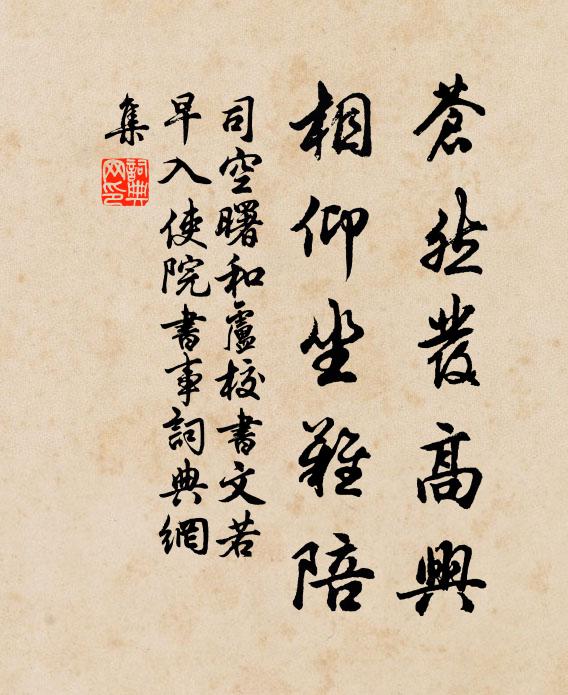 蒼然發高興
相仰坐難陪
司空曙和盧校書文若
早入使院書事詞典網
集
詞典網印